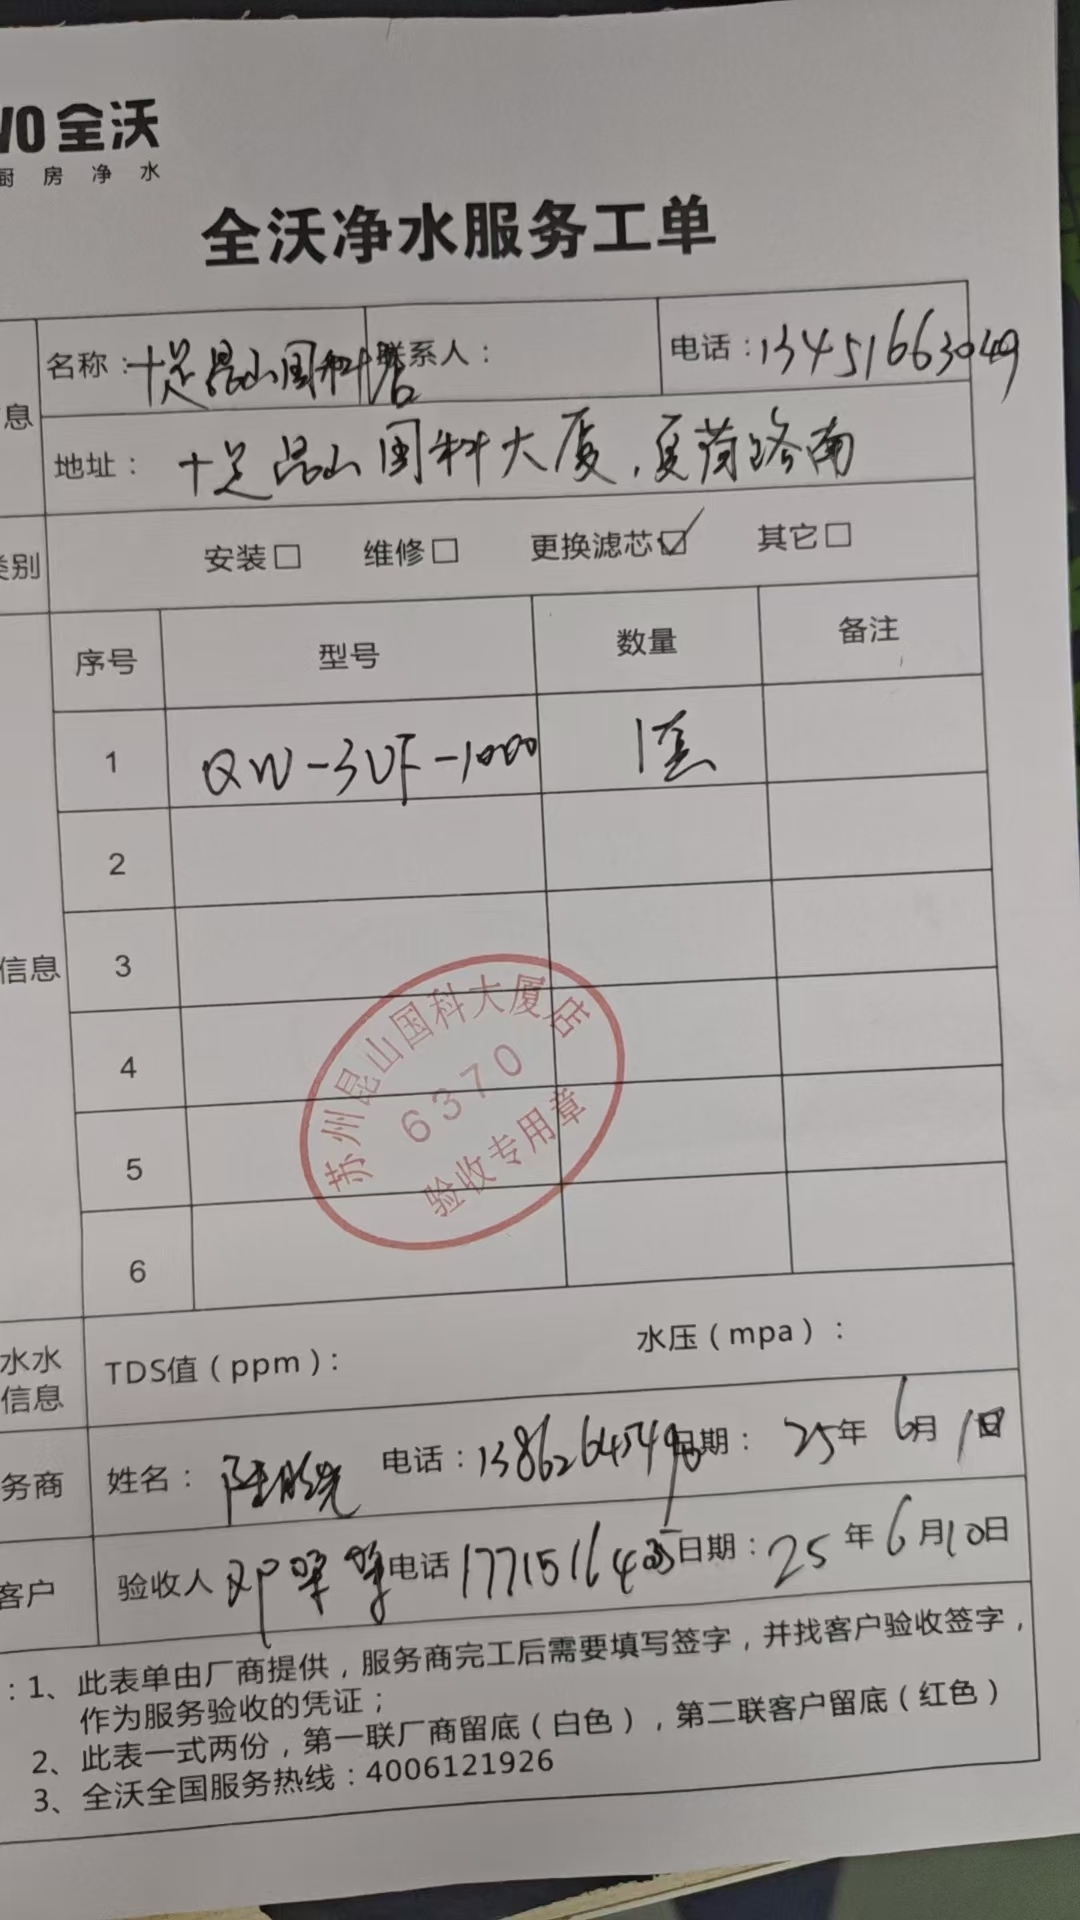 VO 全沃
厨房净水
全沃净水服务工单
息 名称：十足昆山国科店 联系人： 电话：13451663049
地址：十足昆山国科大厦，夏荷路南
类别 安装□ 维修□ 更换滤芯☑ 其它□
序号 型号 数量 备注
1 QW-3UF-1000 1套
2
信息 3
4
5
6
苏州昆山国科大厦店
6370
验收专用章
水水
信息
TDS值（ppm）： 水压（mpa）：
务商 姓名：陆 电话： 日期：25年6月10日
客户 验收人 邓 电话 日期：25年6月10日
：1、此表单由厂商提供，服务商完工后需要填写签字，并找客户验收签字，
作为服务验收的凭证；
2、此表一式两份，第一联厂商留底（白色），第二联客户留底（红色）
3、全沃全国服务热线：4006121926